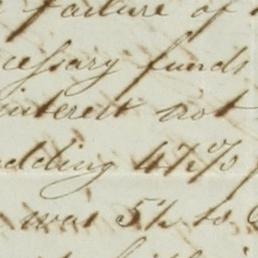 failure of
cessary funds
interest not
adding 4½%
was 5½ to